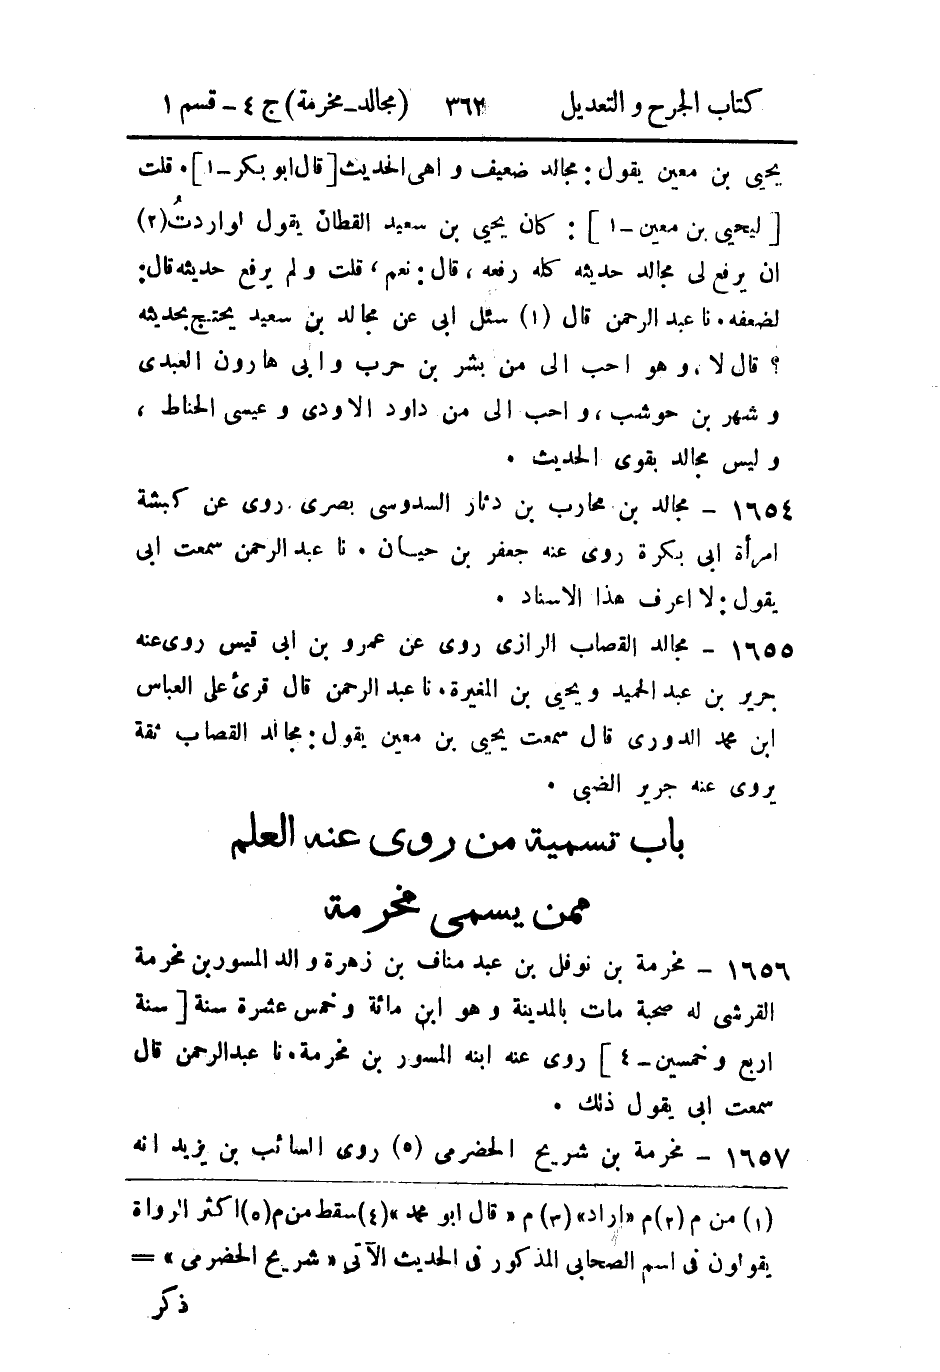 كتاب الجرح و التعديل ٣٦٢ (مجالد-مخرمة) ج ٤ - قسم ١
يحيى بن معين يقول: مجالد ضعيف واهى الحديث [قال ابو بكر - ١] . قلت
[ليحيى بن معين - ١] : كان يحيى بن سعيد القطان يقول لو اردتُ (٢)
ان يرفع لى مجالد حديثه كله رفعه، قال: نعم، قلت ولم يرفع حديثه قال:
لضعفه. نا عبد الرحمن قال (١) سئل ابى عن مجالد بن سعيد يحتج بحديثه
؟ قال لا، و هو احب الى من بشر بن حرب وابى هارون العبدى
و شهر بن حوشب، و احب الى من داود الاودى و عيسى الحناط،
و ليس مجالد بقوى الحديث .
١٦٥٤ - مجالد بن محارب بن دثار السدوسى بصرى روى عن كبشة
امرأة ابى بكرة روى عنه جعفر بن حيان . نا عبد الرحمن سمعت ابى
يقول: لا اعرف هذا الاسناد .
١٦٥٥ - مجالد القصاب الرازى روى عن عمرو بن ابى قيس روى عنه
جرير بن عبد الحميد و يحيى بن المغيرة. نا عبد الرحمن قال قرئ على العباس
ابن محمد الدورى قال سمعت يحيى بن معين يقول: مجالد القصاب ثقة
يروى عنه جرير الضبى .
باب تسمية من روى عنه العلم
ممن يسمى مخرمة
١٦٥٦ - مخرمة بن نوفل بن عبد مناف بن زهرة والد المسور بن مخرمة
القرشى له صحبة مات بالمدينة و هو ابن مائة و خمس عشرة سنة [سنة
اربع و خمسين - ٤] روى عنه ابنه المسور بن مخرمة. نا عبدالرحمن قال
سمعت ابى يقول ذلك .
١٦٥٧ - مخرمة بن شريح الحضرمى (٥) روى السائب بن يزيد انه
(١) من م (٢) م «اراد» (٣) م «قال ابو محمد» (٤) سقط من م (٥) اكثر الرواة
يقولون فى اسم الصحابى المذكور فى الحديث الآتى «شريح الحضرمى» =
ذكر